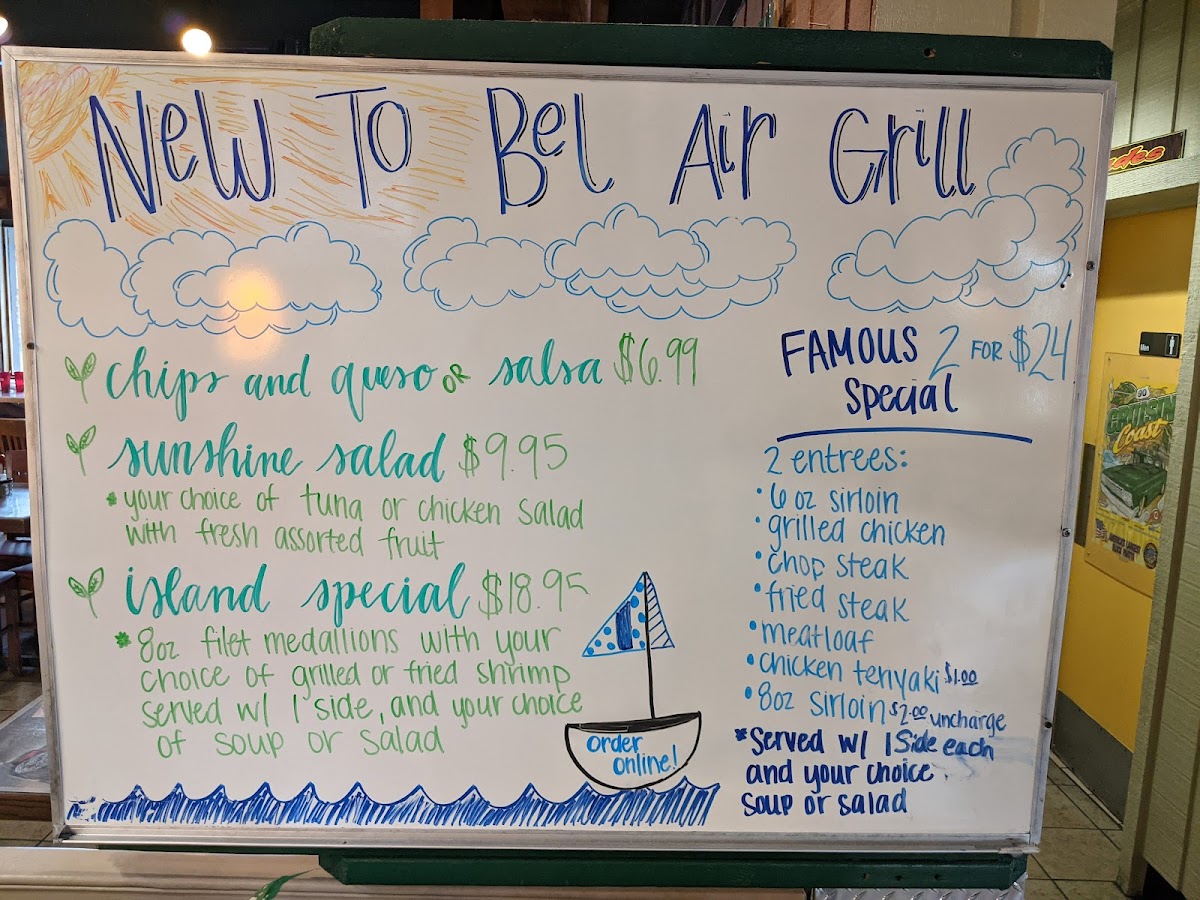 New To Bel Air Grill
chips and queso or salsa $6.99
sunshine salad $9.95
* your choice of tuna or chicken salad
with fresh assorted fruit
island special $18.95
* 8oz filet medallions with your
choice of grilled or fried shrimp
served w/ 1 side, and your choice
of soup or salad
order
online!
FAMOUS 2 FOR $24
Special
2 entrees:
• 6 oz sirloin
• grilled chicken
• chop steak
• fried steak
• meatloaf
• chicken teriyaki $1.00
• 8oz sirloin $2.00 uncharge
* Served w/ 1 Side each
and your choice
soup or salad
Men
CRUISIN
Coast